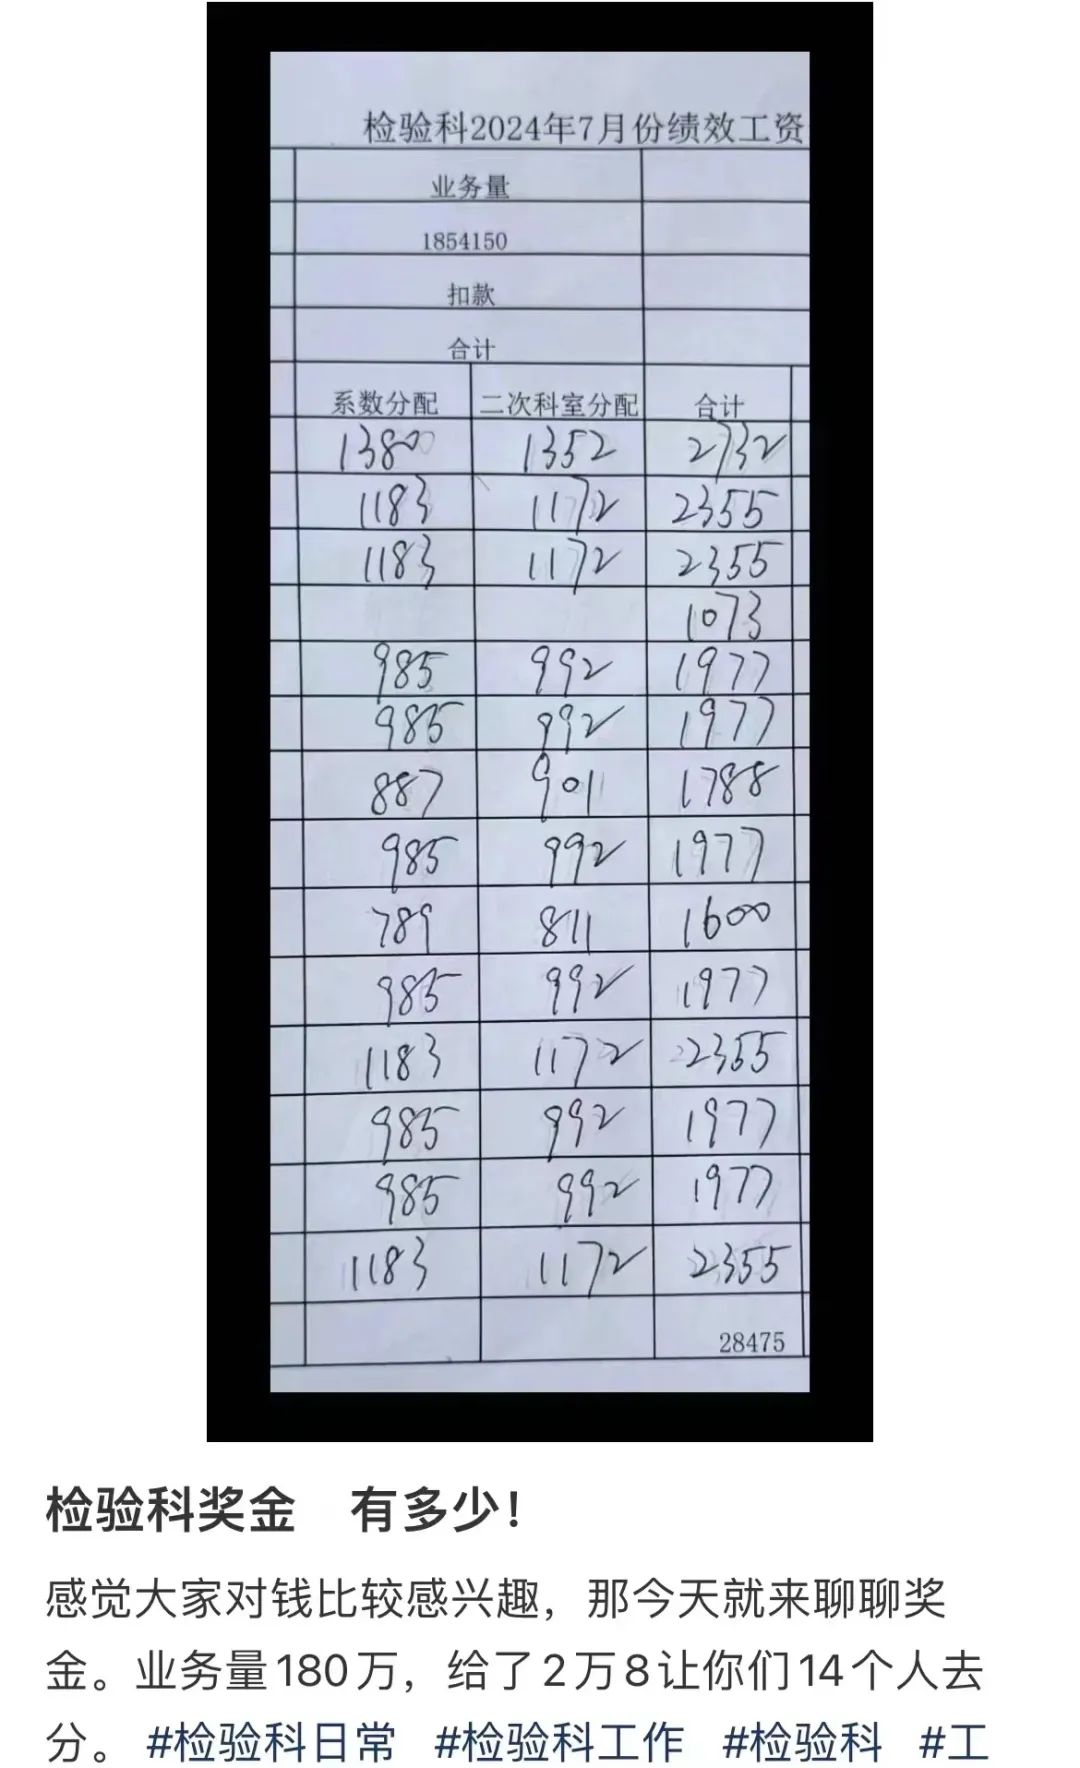 检验科2024年7月份绩效工资
业务量
1854150
扣款
合计
系数分配 二次科室分配 合计
1380 1352 2732
1183 1172 2355
1183 1172 2355
1073
985 992 1977
985 992 1977
887 901 1788
985 992 1977
789 811 1600
985 992 1977
1183 1172 2355
985 992 1977
985 992 1977
1183 1172 2355
28475
检验科奖金 有多少！
感觉大家对钱比较感兴趣，那今天就来聊聊奖
金。业务量180万，给了2万8让你们14个人去
分。 #检验科日常 #检验科工作 #检验科 #工